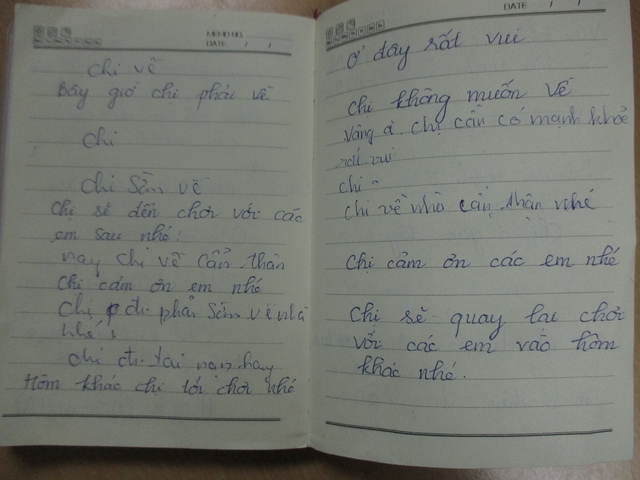 MEMO NO.
DATE / /
Chị về
Bây giờ chị phải về
chị
chị sắm về
chị sẽ đến chơi với các
em sau nhé!
nay chị về cẩn thận
chị cảm ơn em nhé
chị đi phải sắm về nhà
nhé!
chị đi tai nạn hay
Hôm khác chị tới chơi nhé
DATE / /
Ở đây rất vui
chị không muốn về
Vâng ạ chị cần có mạnh khỏe
chị
chị về nhà cẩn thận nhé
chị cảm ơn các em nhé
chị sẽ quay lại chơi
với các em vào hôm
khác nhé.